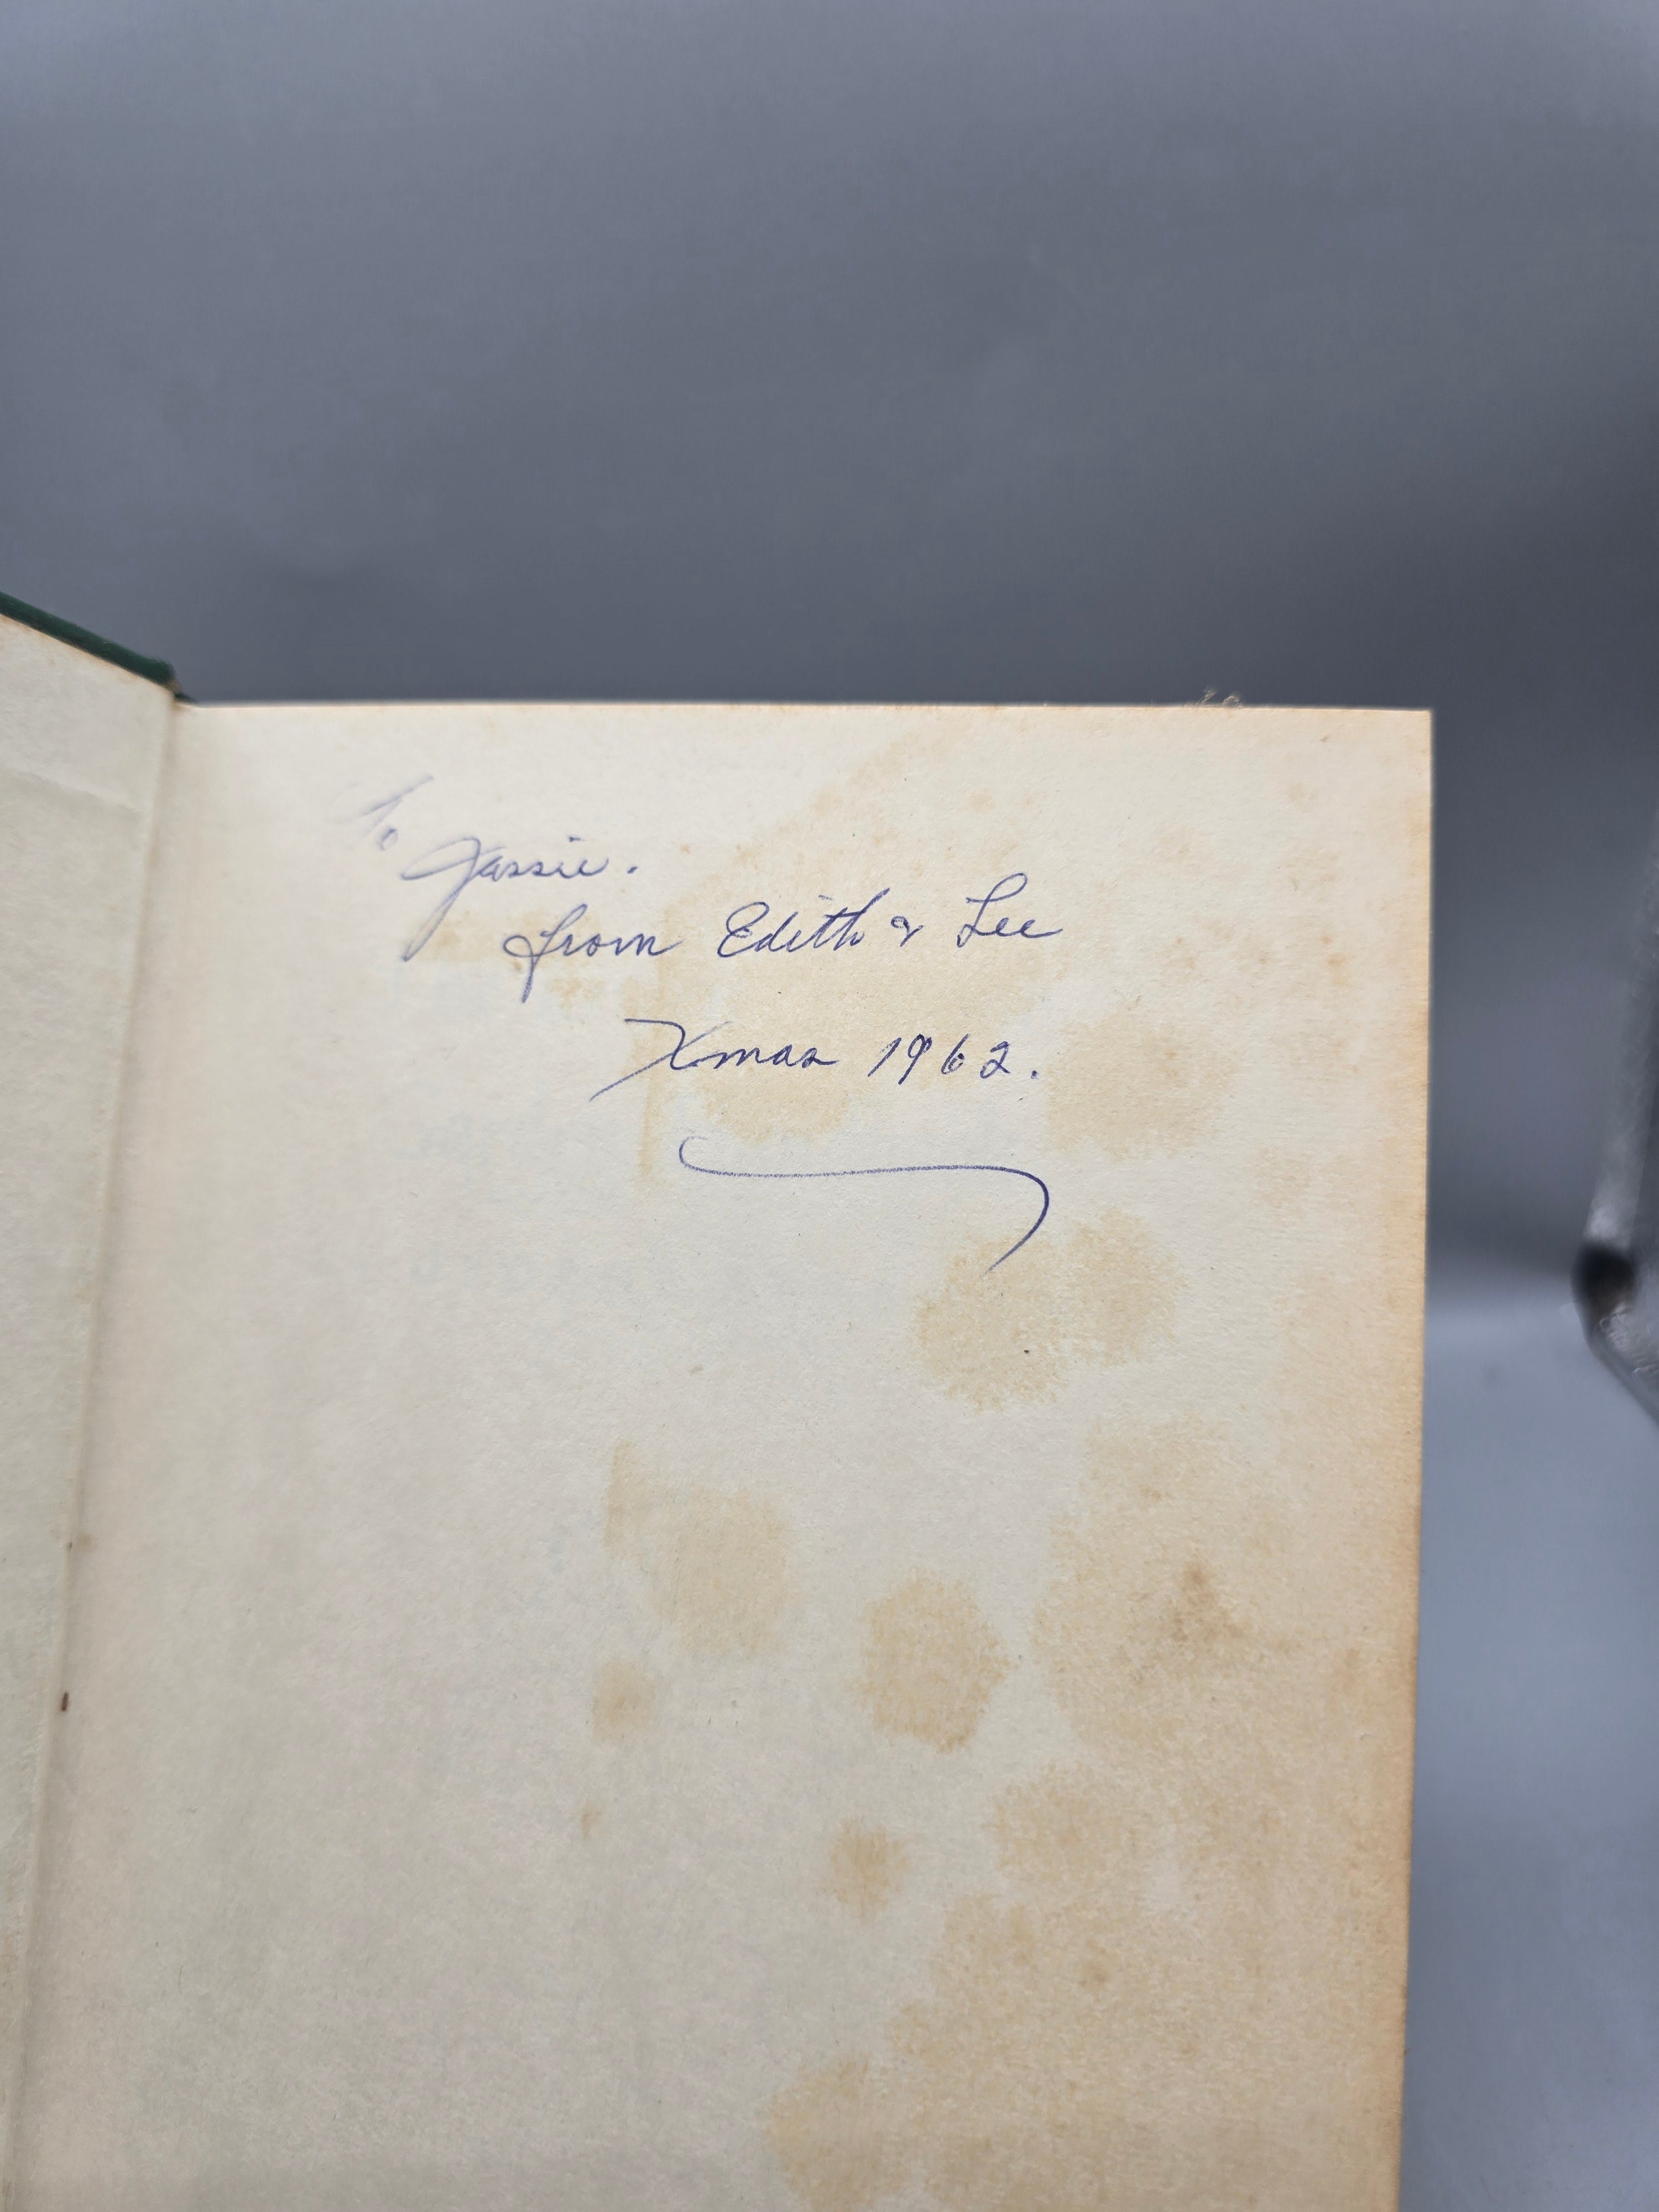 To
Jassie.
from Edith & Lee
Xmas 1962.